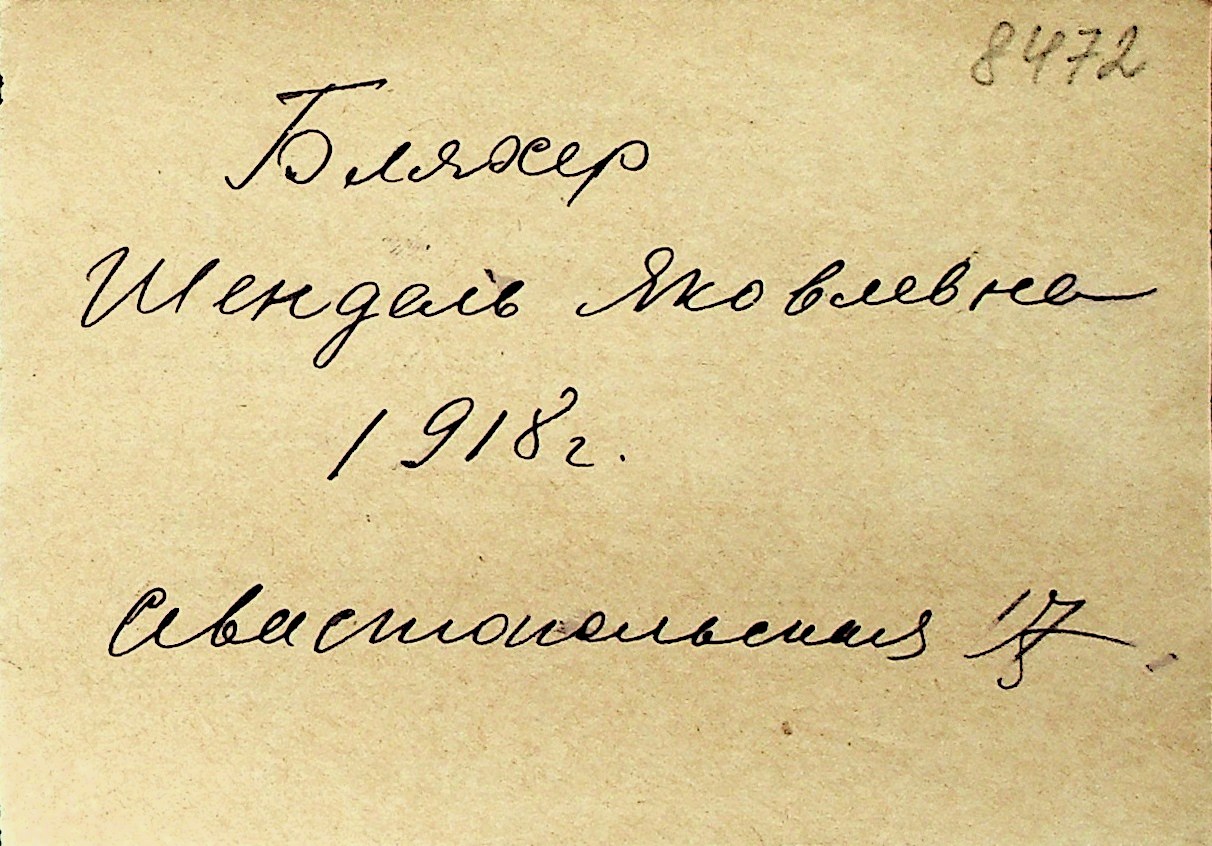 8472
Бляхер
Шендель Яковлевна
1918 г.
Севастопольская